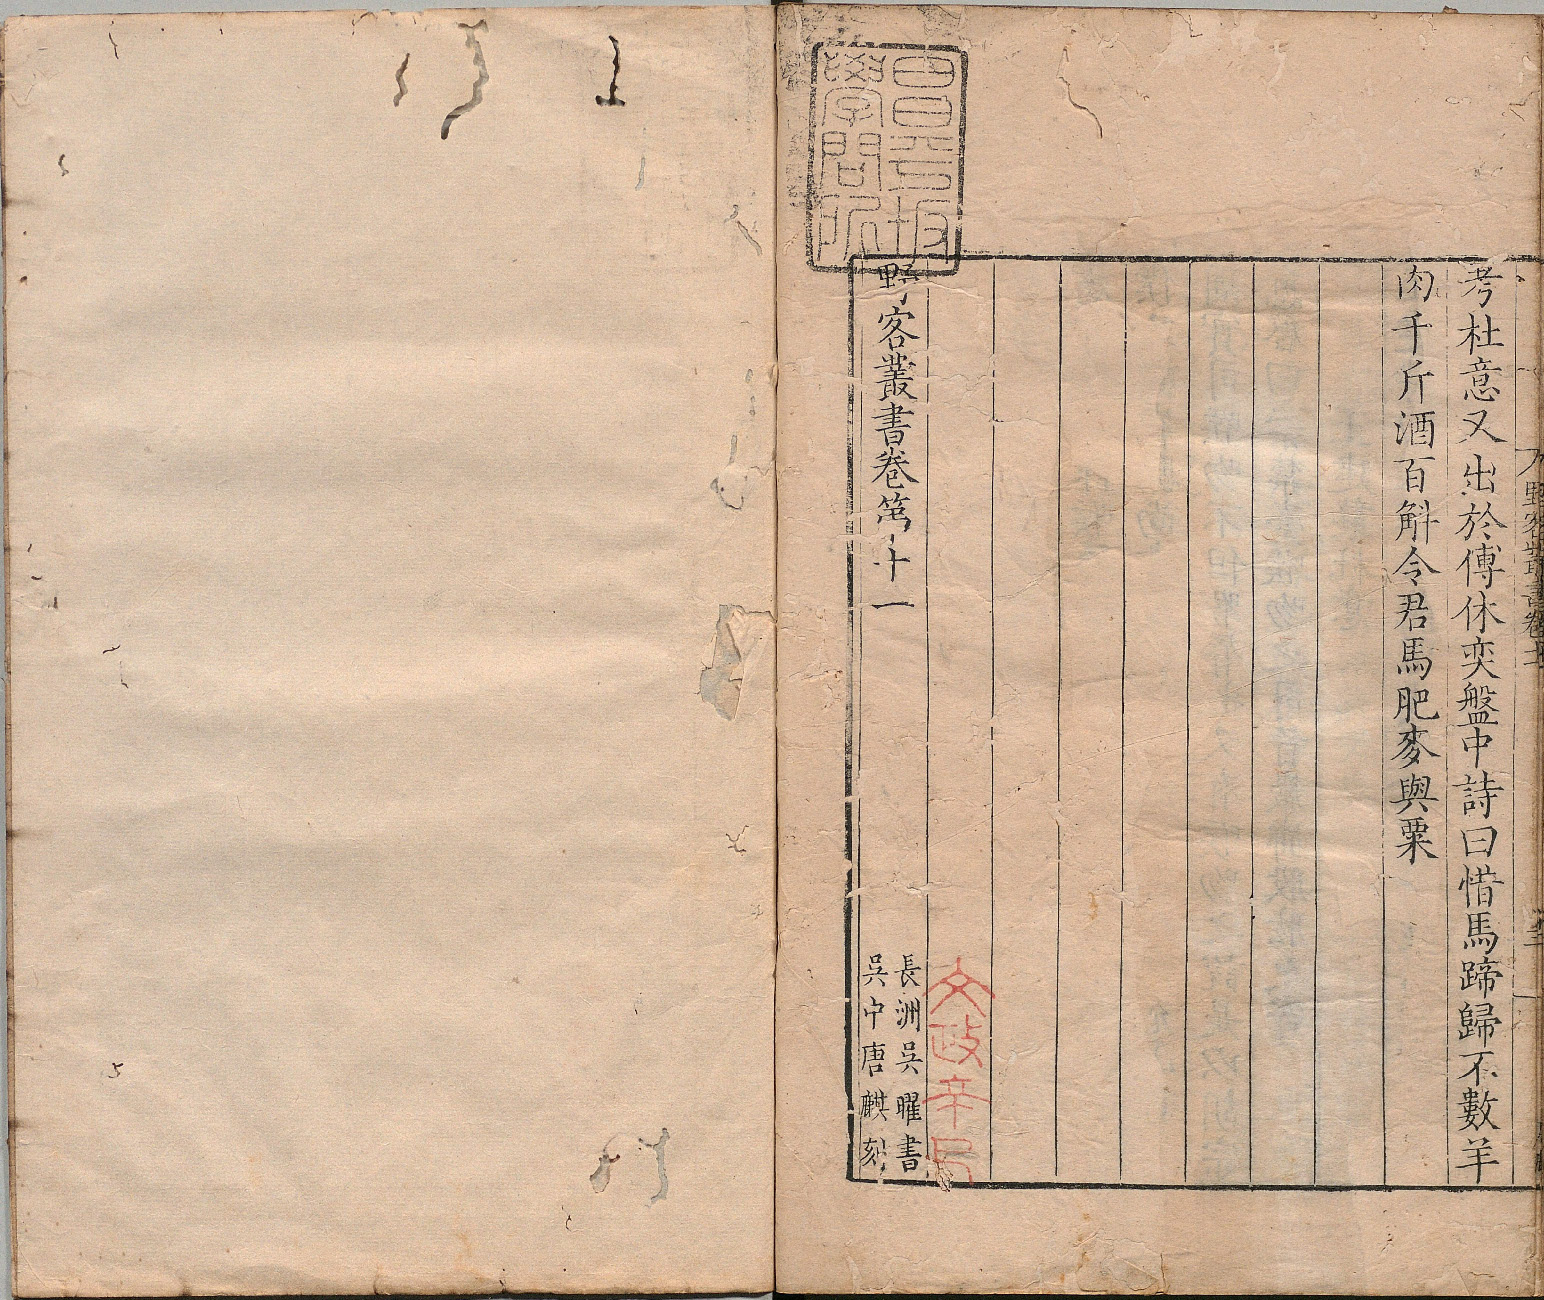 野客叢書卷十一
考杜意又出於傅休奕盤中詩曰惜馬蹄歸不數羊
肉千斤酒百斛令君馬肥麥與粟
野客叢書卷第十一
長洲吳曜書
吳中唐麒刻
文政辛巳
昌平坂
學問所